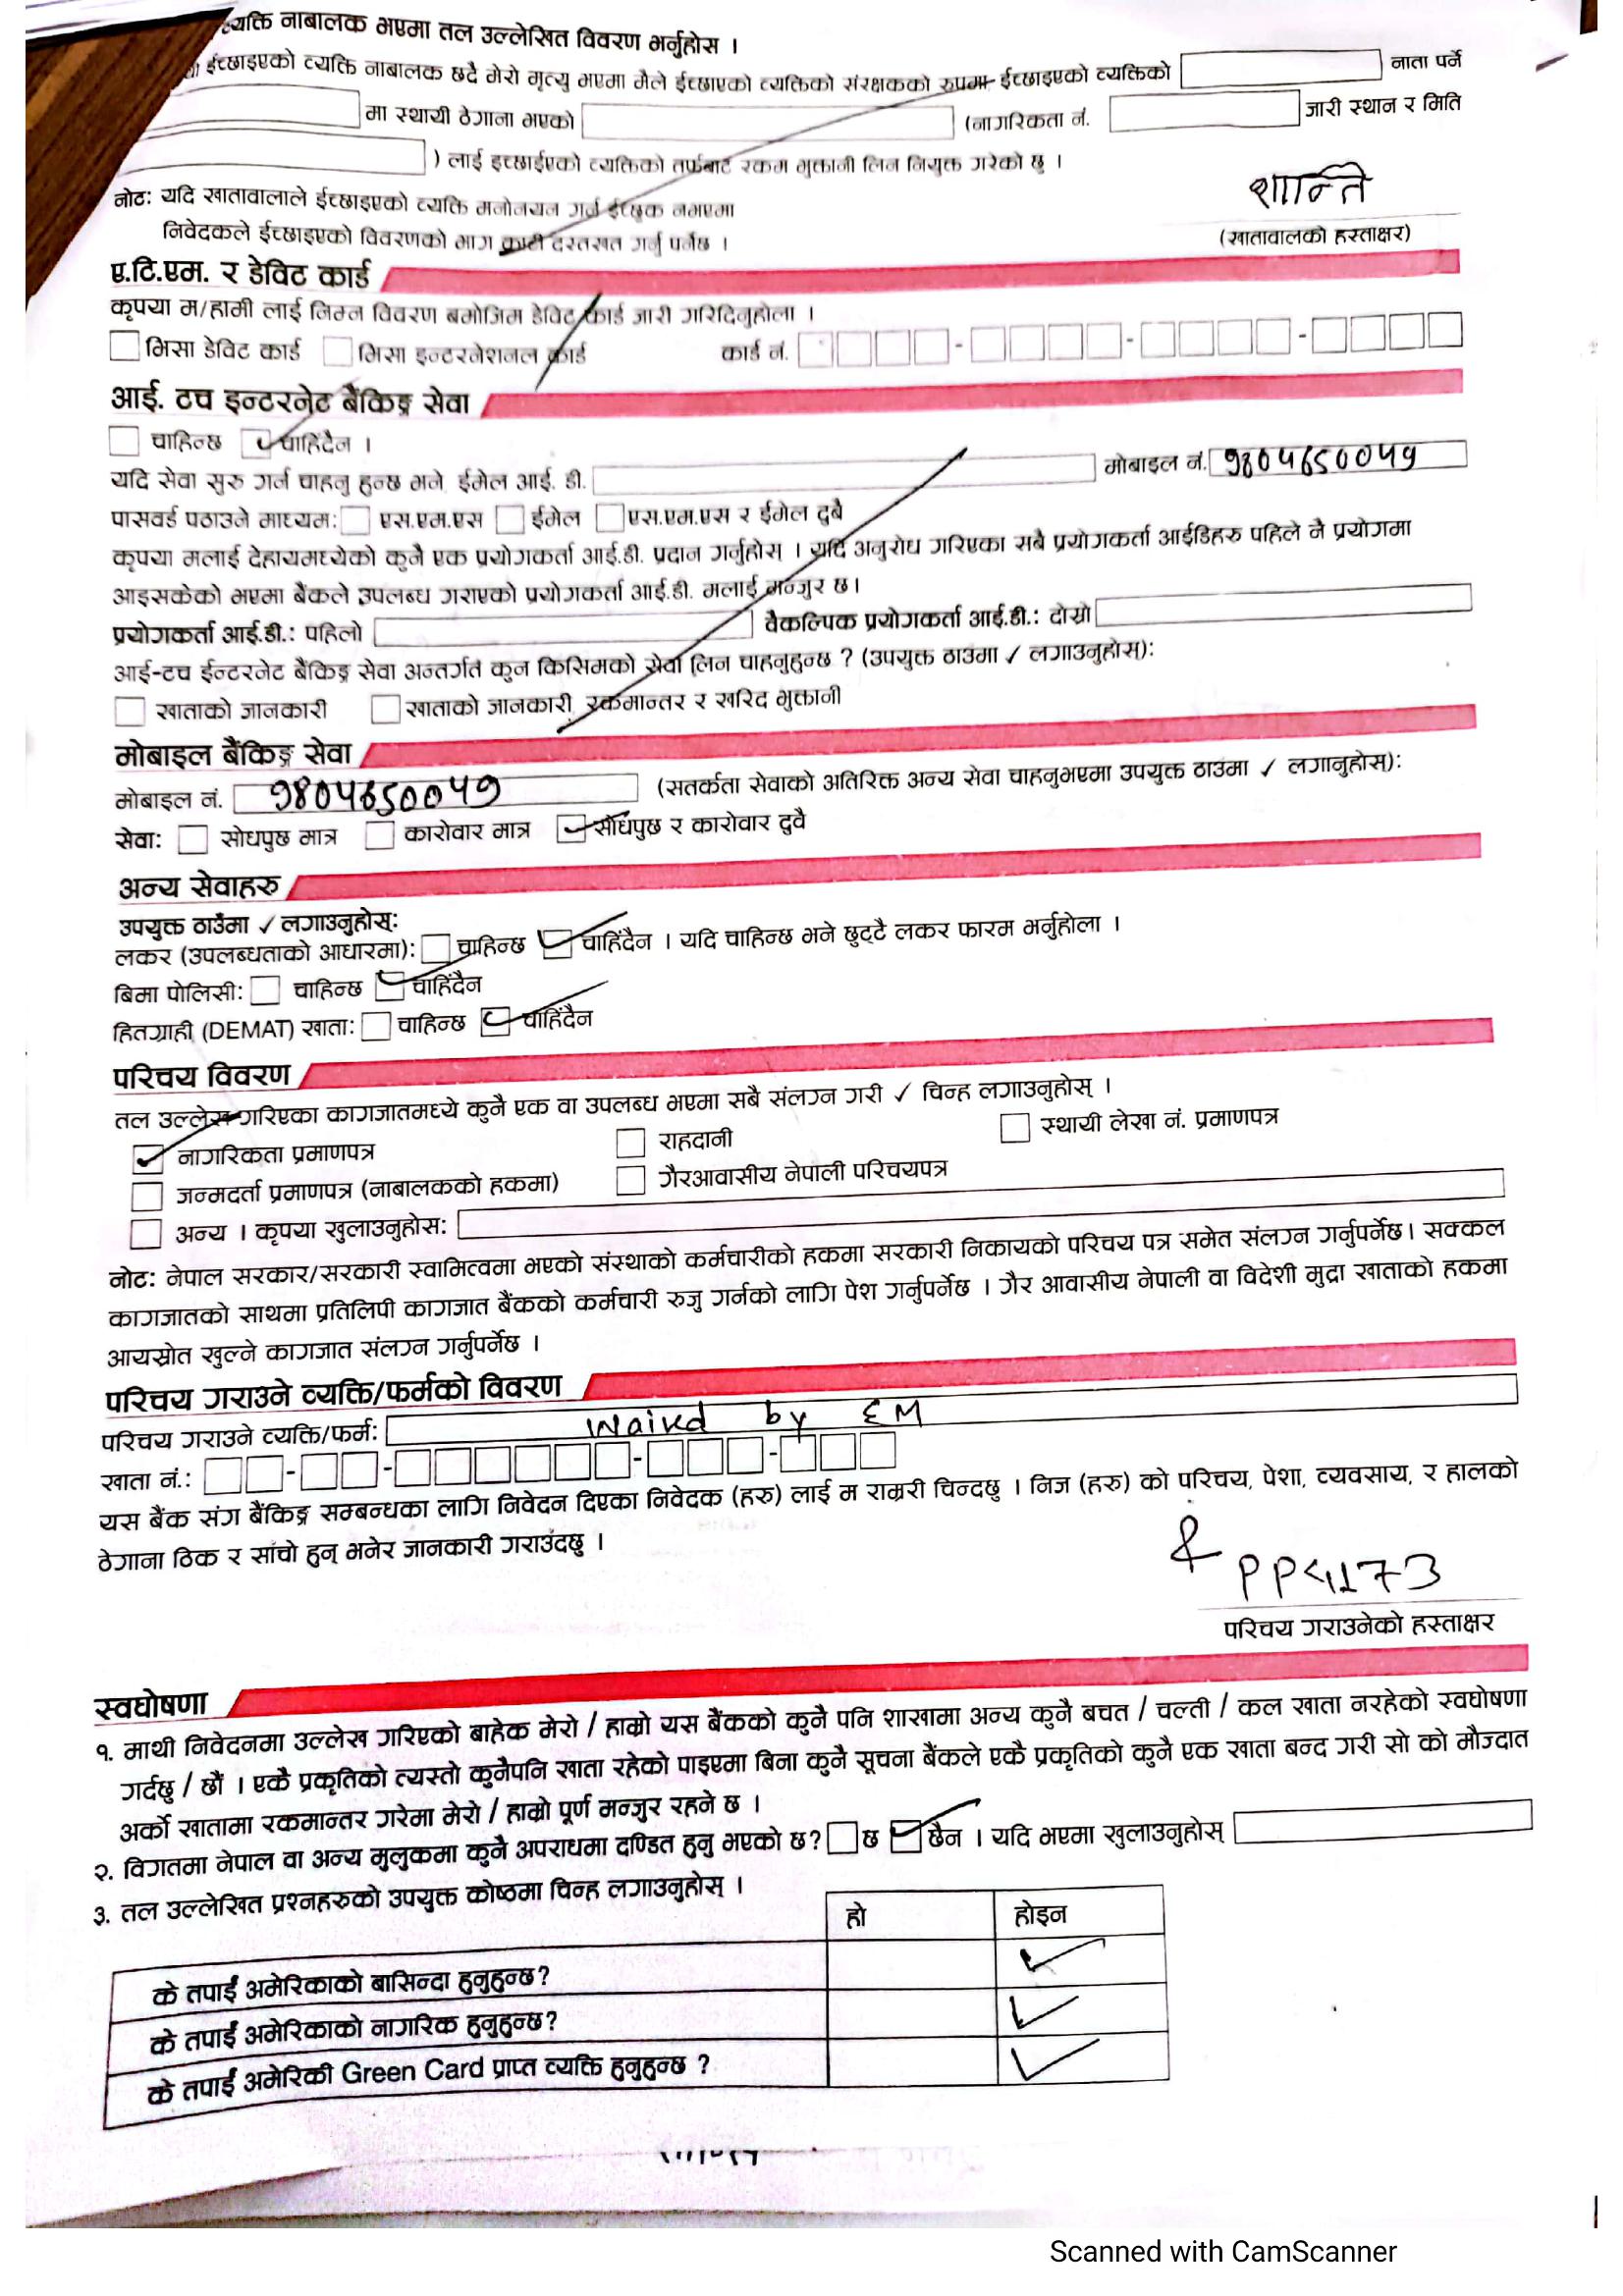 व्यक्ति नाबालक भएमा तल उल्लेखित विवरण भर्नुहोस ।
ईच्छाइएको व्यक्ति नाबालक छदै मेरो मृत्यु भएमा मैले ईच्छाएको व्यक्तिको संरक्षकको रुपमा ईच्छाइएको व्यक्तिको नाता पर्ने
मा स्थायी ठेगाना भएको (नागरिकता नं. जारी स्थान र मिति
) लाई इच्छाईएको व्यक्तिको तर्फबाट रकम भुक्तानी लिन नियुक्त गरेको छु ।
नोट: यदि खातावालाले ईच्छाइएको व्यक्ति मनोनयन गर्न ईच्छुक नभएमा
निवेदकले ईच्छाइएको विवरणको भाग काटी दस्तखत गर्नु पर्नेछ ।
शान्ति
(खातावालको हस्ताक्षर)
ए.टि.एम. र डेविट कार्ड
कृपया म/हामी लाई निम्न विवरण बमोजिम डेविट कार्ड जारी गरिदिनुहोला ।
भिसा डेविट कार्ड भिसा इन्टरनेशनल कार्ड कार्ड नं. - - -
आई. टच इन्टरनेट बैंकिङ्ग सेवा
चाहिन्छ ✓ चाहिंदैन ।
यदि सेवा सुरु गर्न चाहनु हुन्छ भने ईमेल आई. डी. मोबाइल नं. 9804650049
पासवर्ड पठाउने माध्यम: एस.एम.एस ईमेल एस.एम.एस र ईमेल दुबै
कृपया मलाई देहायमध्येको कुनै एक प्रयोगकर्ता आई.डी. प्रदान गर्नुहोस् । यदि अनुरोध गरिएका सबै प्रयोगकर्ता आईडिहरु पहिले नै प्रयोगमा
आइसकेको भएमा बैंकले उपलब्ध गराएको प्रयोगकर्ता आई.डी. मलाई मन्जुर छ।
प्रयोगकर्ता आई.डी.: पहिलो वैकल्पिक प्रयोगकर्ता आई.डी.: दोस्रो
आई-टच ईन्टरनेट बैंकिङ्ग सेवा अन्तर्गत कुन किसिमको सेवा लिन चाहनुहुन्छ ? (उपयुक्त ठाउंमा ✓ लगाउनुहोस्):
खाताको जानकारी खाताको जानकारी, रकमान्तर र खरिद भुक्तानी
मोबाइल बैंकिङ्ग सेवा
मोबाइल नं. 9804650049 (सतर्कता सेवाको अतिरिक्त अन्य सेवा चाहनुभएमा उपयुक्त ठाउंमा ✓ लगानुहोस्):
सेवा: सोधपुछ मात्र कारोवार मात्र ✓ सोधपुछ र कारोवार दुवै
अन्य सेवाहरु
उपयुक्त ठाउँमा ✓ लगाउनुहोस्:
लकर (उपलब्धताको आधारमा): चाहिन्छ ✓ चाहिंदैन । यदि चाहिन्छ भने छुट्टै लकर फारम भर्नुहोला ।
बिमा पोलिसी: चाहिन्छ ✓ चाहिंदैन
हितग्राही (DEMAT) खाता: चाहिन्छ ✓ चाहिंदैन
परिचय विवरण
तल उल्लेख गरिएका कागजातमध्ये कुनै एक वा उपलब्ध भएमा सबै संलग्न गरी ✓ चिन्ह लगाउनुहोस् ।
✓ नागरिकता प्रमाणपत्र राहदानी स्थायी लेखा नं. प्रमाणपत्र
जन्मदर्ता प्रमाणपत्र (नाबालकको हकमा) गैरआवासीय नेपाली परिचयपत्र
अन्य । कृपया खुलाउनुहोस:
नोट: नेपाल सरकार/सरकारी स्वामित्वमा भएको संस्थाको कर्मचारीको हकमा सरकारी निकायको परिचय पत्र समेत संलग्न गर्नुपर्नेछ। सक्कल
कागजातको साथमा प्रतिलिपी कागजात बैंकको कर्मचारी रुजु गर्नको लागि पेश गर्नुपर्नेछ । गैर आवासीय नेपाली वा विदेशी मुद्रा खाताको हकमा
आयस्रोत खुल्ने कागजात संलग्न गर्नुपर्नेछ ।
परिचय गराउने व्यक्ति/फर्मको विवरण
परिचय गराउने व्यक्ति/फर्म: Waived by EM
खाता नं.: - - - -
यस बैंक संग बैंकिङ्ग सम्बन्धका लागि निवेदन दिएका निवेदक (हरु) लाई म राम्ररी चिन्दछु । निज (हरु) को परिचय, पेशा, व्यवसाय, र हालको
ठेगाना ठिक र सांचो हुन् भनेर जानकारी गराउंदछु ।
परिचय गराउनेको हस्ताक्षर
स्वघोषणा
१. माथी निवेदनमा उल्लेख गरिएको बाहेक मेरो / हाम्रो यस बैंकको कुनै पनि शाखामा अन्य कुनै बचत / चल्ती / कल खाता नरहेको स्वघोषणा
गर्दछु / छौं । एकै प्रकृतिको त्यस्तो कुनैपनि खाता रहेको पाइएमा बिना कुनै सूचना बैंकले एकै प्रकृतिको कुनै एक खाता बन्द गरी सो को मौज्दात
अर्को खातामा रकमान्तर गरेमा मेरो / हाम्रो पूर्ण मन्जुर रहने छ ।
२. विगतमा नेपाल वा अन्य मुलुकमा कुनै अपराधमा दण्डित हुनु भएको छ? छ ✓ छैन । यदि भएमा खुलाउनुहोस्
३. तल उल्लेखित प्रश्नहरुको उपयुक्त कोष्ठमा चिन्ह लगाउनुहोस् ।
हो होइन
के तपाईं अमेरिकाको बासिन्दा हुनुहुन्छ? ✓
के तपाईं अमेरिकाको नागरिक हुनुहुन्छ? ✓
के तपाईं अमेरिकी Green Card प्राप्त व्यक्ति हुनुहुन्छ ? ✓
Scanned with CamScanner